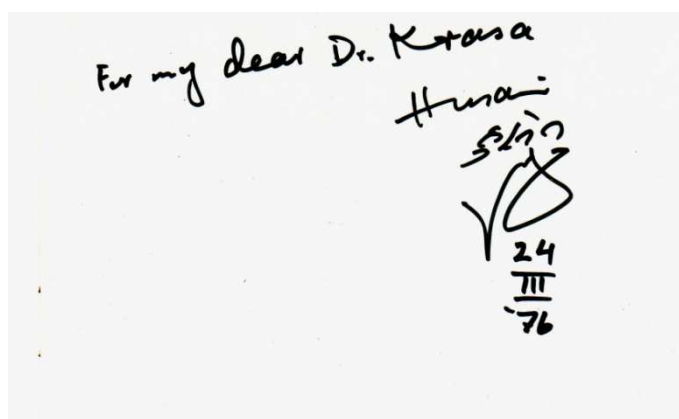 For my dear Dr. Krasa
Husain
24
III
'76